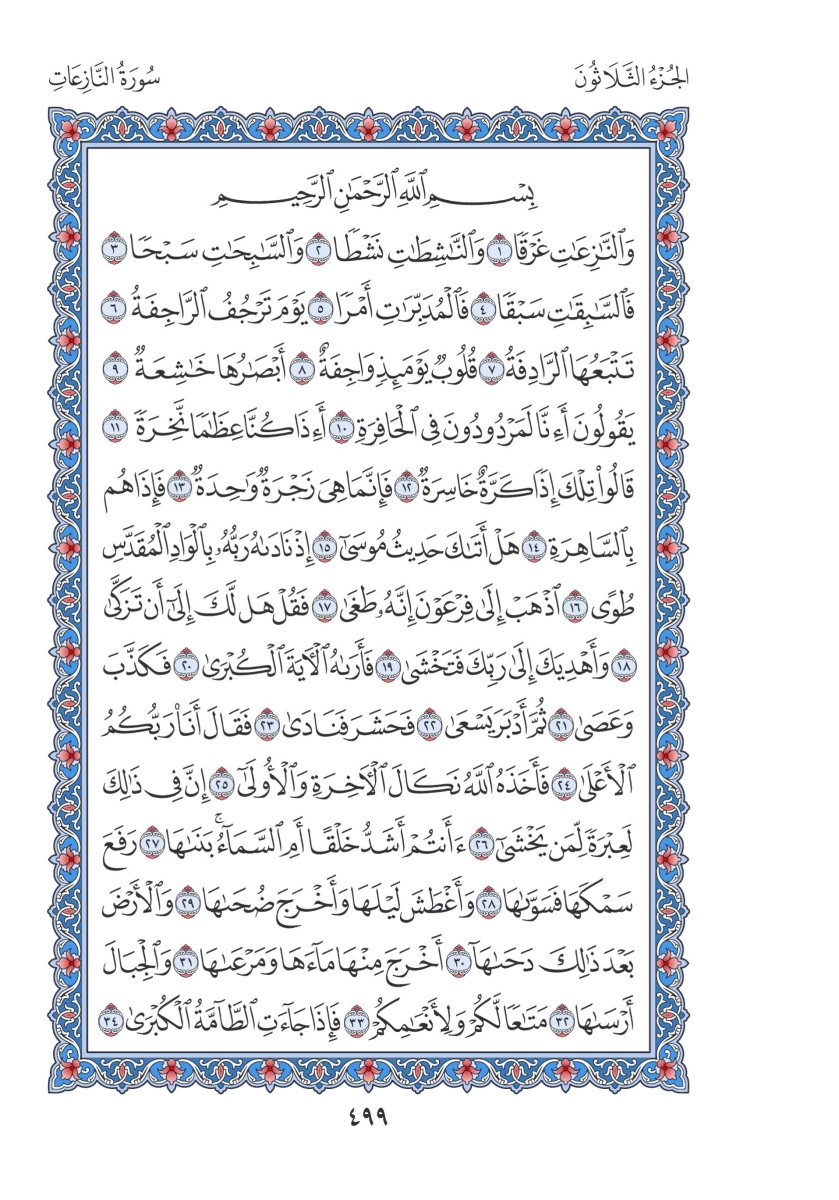 الجُزْءُ الثَّلَاثُونَ
سُورَةُ النَّازِعَاتِ
بِسْمِ ٱللَّهِ ٱلرَّحْمَٰنِ ٱلرَّحِيمِ
وَٱلنَّٰزِعَٰتِ غَرْقًا ١ وَٱلنَّٰشِطَٰتِ نَشْطًا ٢ وَٱلسَّٰبِحَٰتِ سَبْحًا ٣
فَٱلسَّٰبِقَٰتِ سَبْقًا ٤ فَٱلْمُدَبِّرَٰتِ أَمْرًا ٥ يَوْمَ تَرْجُفُ ٱلرَّاجِفَةُ ٦
تَتْبَعُهَا ٱلرَّادِفَةُ ٧ قُلُوبٌ يَوْمَئِذٍ وَاجِفَةٌ ٨ أَبْصَٰرُهَا خَٰشِعَةٌ ٩
يَقُولُونَ أَءِنَّا لَمَرْدُودُونَ فِى ٱلْحَافِرَةِ ١٠ أَءِذَا كُنَّا عِظَٰمًا نَّخِرَةً ١١
قَالُوا۟ تِلْكَ إِذًا كَرَّةٌ خَاسِرَةٌ ١٢ فَإِنَّمَا هِىَ زَجْرَةٌ وَٰحِدَةٌ ١٣ فَإِذَا هُم
بِٱلسَّاهِرَةِ ١٤ هَلْ أَتَىٰكَ حَدِيثُ مُوسَىٰٓ ١٥ إِذْ نَادَىٰهُ رَبُّهُۥ بِٱلْوَادِ ٱلْمُقَدَّسِ
طُوًى ١٦ ٱذْهَبْ إِلَىٰ فِرْعَوْنَ إِنَّهُۥ طَغَىٰ ١٧ فَقُلْ هَل لَّكَ إِلَىٰٓ أَن تَزَكَّىٰ
١٨ وَأَهْدِيَكَ إِلَىٰ رَبِّكَ فَتَخْشَىٰ ١٩ فَأَرَىٰهُ ٱلْءَايَةَ ٱلْكُبْرَىٰ ٢٠ فَكَذَّبَ
وَعَصَىٰ ٢١ ثُمَّ أَدْبَرَ يَسْعَىٰ ٢٢ فَحَشَرَ فَنَادَىٰ ٢٣ فَقَالَ أَنَا۠ رَبُّكُمُ
ٱلْأَعْلَىٰ ٢٤ فَأَخَذَهُ ٱللَّهُ نَكَالَ ٱلْءَاخِرَةِ وَٱلْأُولَىٰٓ ٢٥ إِنَّ فِى ذَٰلِكَ
لَعِبْرَةً لِّمَن يَخْشَىٰٓ ٢٦ ءَأَنتُمْ أَشَدُّ خَلْقًا أَمِ ٱلسَّمَآءُ ۚ بَنَىٰهَا ٢٧ رَفَعَ
سَمْكَهَا فَسَوَّىٰهَا ٢٨ وَأَغْطَشَ لَيْلَهَا وَأَخْرَجَ ضُحَىٰهَا ٢٩ وَٱلْأَرْضَ
بَعْدَ ذَٰلِكَ دَحَىٰهَآ ٣٠ أَخْرَجَ مِنْهَا مَآءَهَا وَمَرْعَىٰهَا ٣١ وَٱلْجِبَالَ
أَرْسَىٰهَا ٣٢ مَتَٰعًا لَّكُمْ وَلِأَنْعَٰمِكُمْ ٣٣ فَإِذَا جَآءَتِ ٱلطَّآمَّةُ ٱلْكُبْرَىٰ ٣٤
٤٩٩